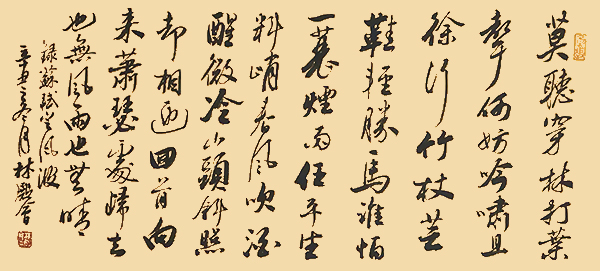 莫聽穿林打葉
聲何妨吟嘯且
徐行竹杖芒
鞋輕勝馬誰怕
一蓑煙雨任平生
料峭春風吹酒
醒微冷山頭斜照
却相迎回首向
來蕭瑟處歸去
也無風雨也無晴
錄蘇軾定風波
辛丑冬月林